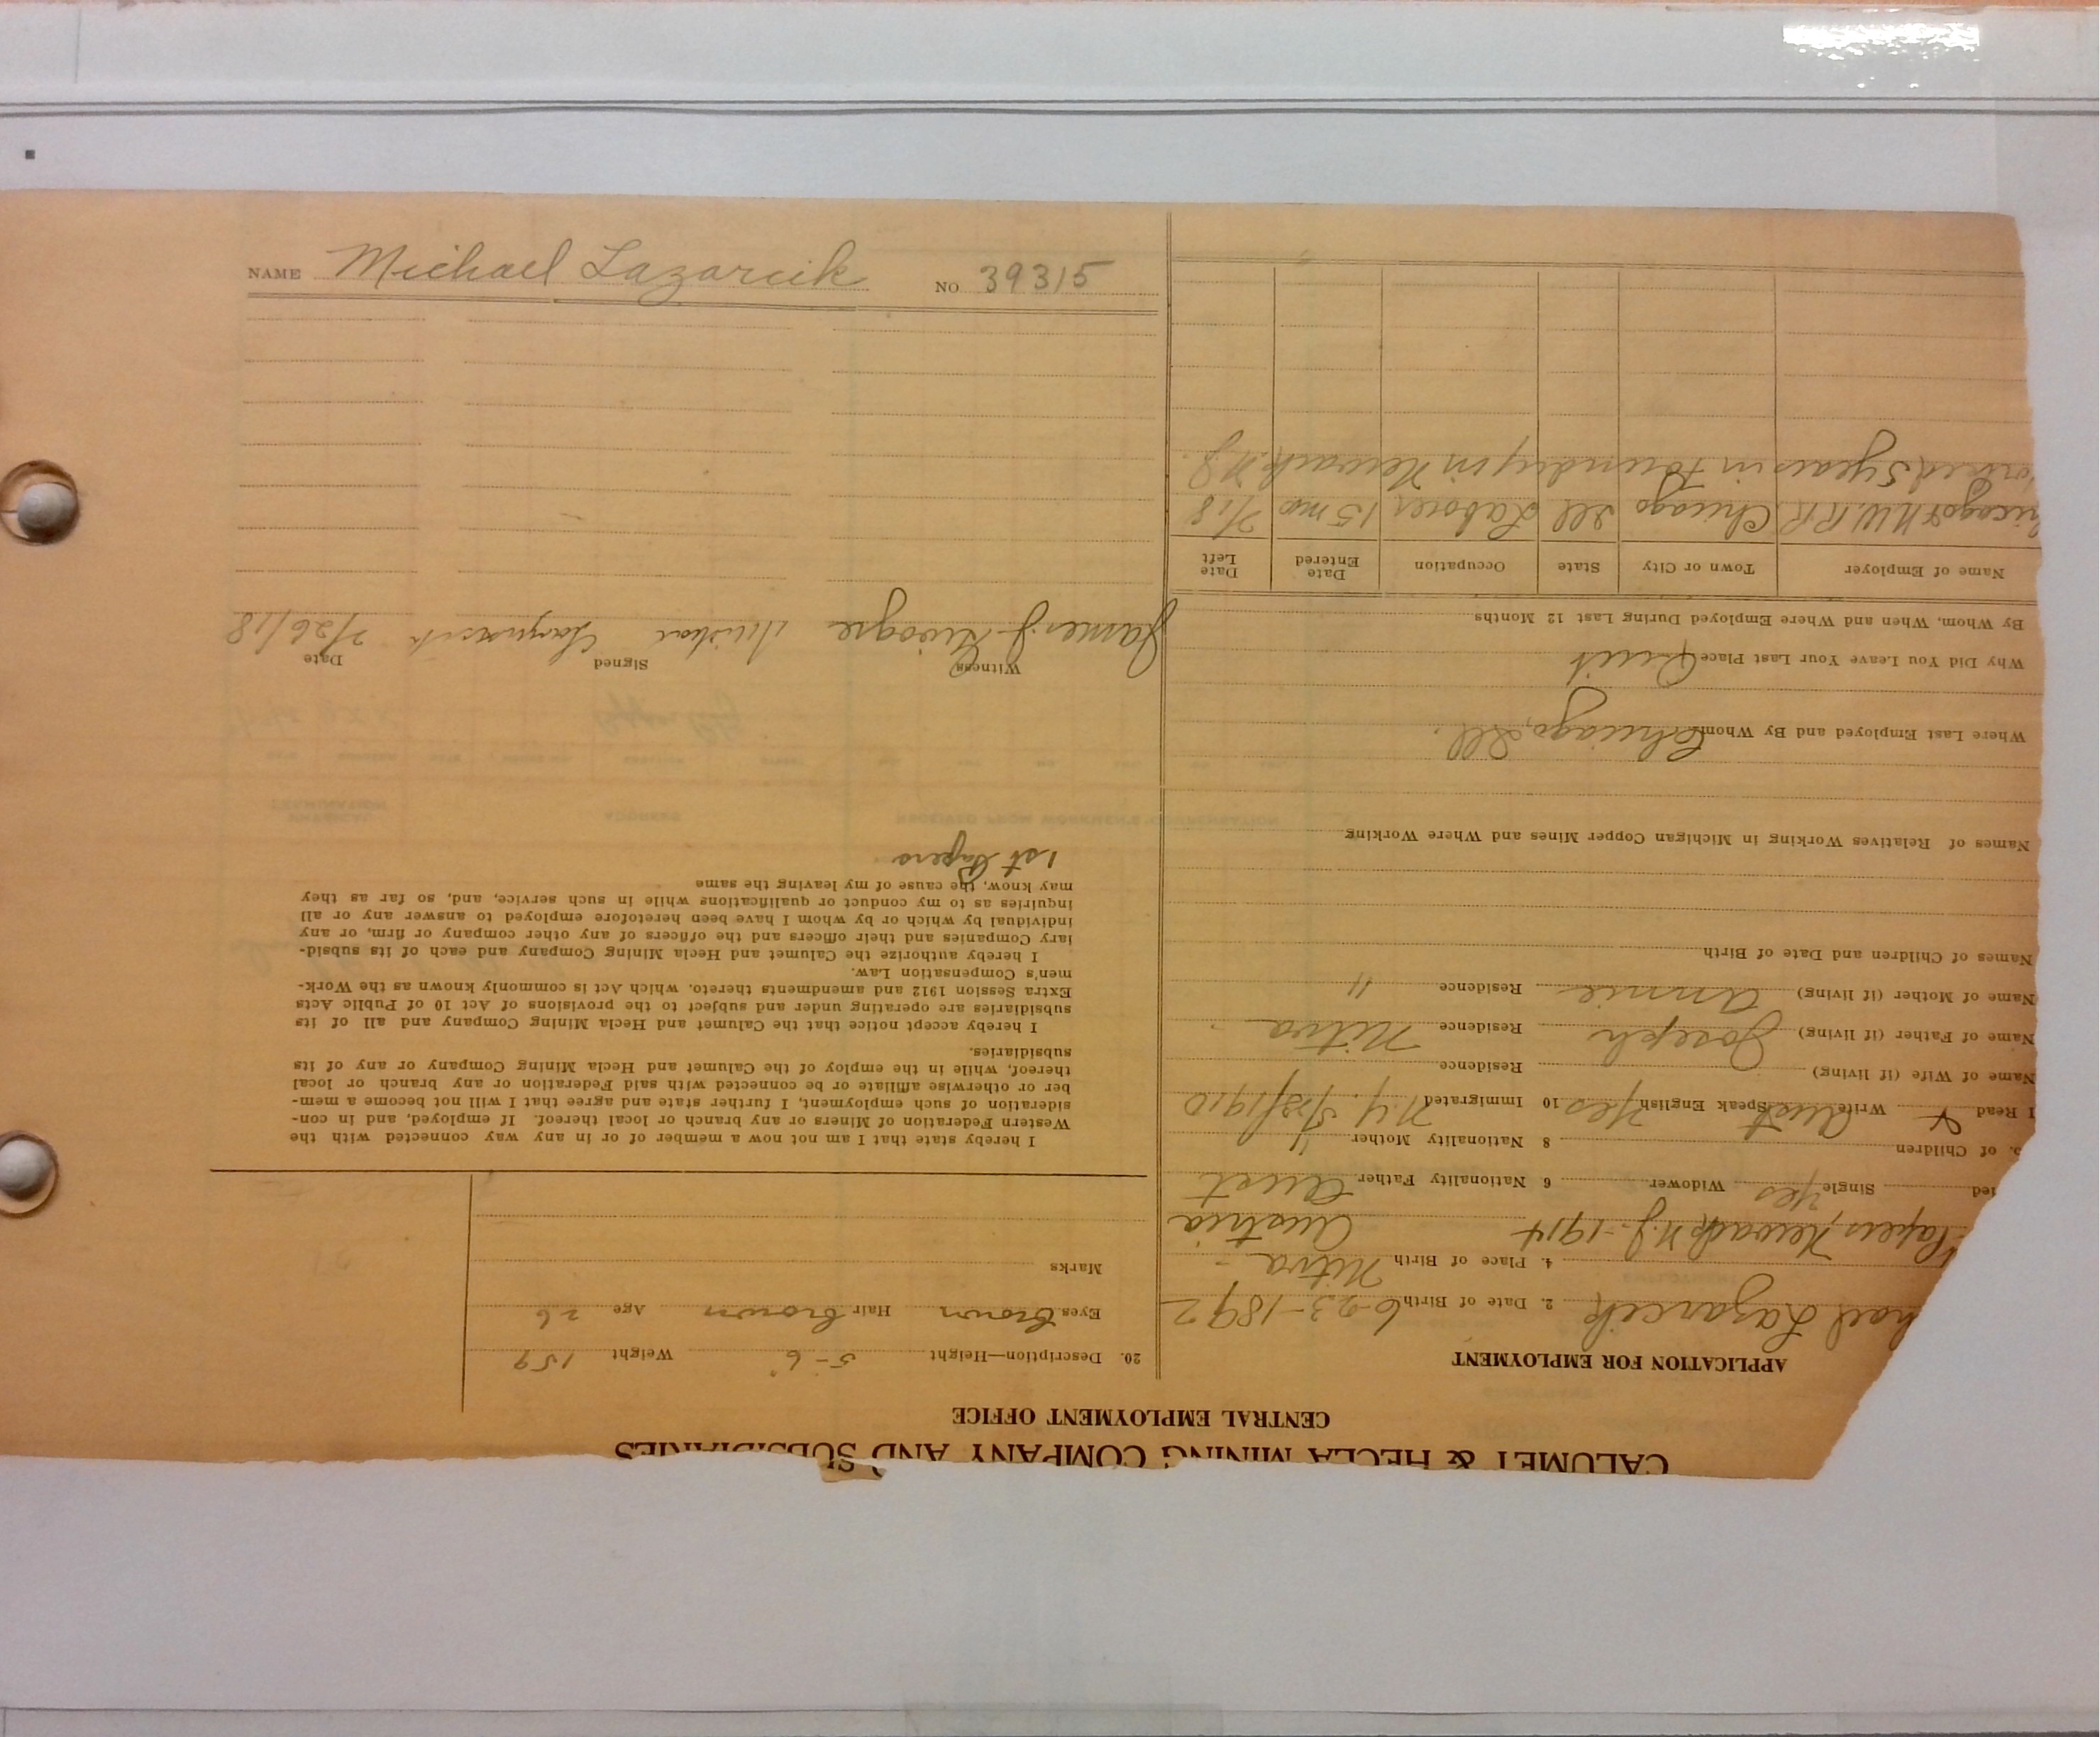 NAME Michael Lazarcik NO 39315
CALUMET & HECLA MINING COMPANY AND SUBSIDIARIES
CENTRAL EMPLOYMENT OFFICE
APPLICATION FOR EMPLOYMENT
hael Lazarcik 2. Date of Birth 6-23-1892
4. Place of Birth Nitra -
Papers, Newark N.J. - 1914 Austria
ied Single Yes Widower 6 Nationality Father Aust
o. of Children 8 Nationality Mother "
I Read & Write Aust Speak English Yes 10 Immigrated N.Y. 1910
Name of Wife (if living) Residence
Name of Father (if living) Joseph Residence Nitra -
Name of Mother (if living) Annie Residence "
Names of Children and Date of Birth
Names of Relatives Working in Michigan Copper Mines and Where Working
Where Last Employed and By Whom Chicago, Ill.
Why Did You Leave Your Last Place Quit
By Whom, When and Where Employed During Last 12 Months
Name of Employer Town or City State Occupation Date Entered Date Left
hicago & N.W.R.R. Chicago Ill Laborer 15 mo 7/18
orked 5 years in Foundry in Newark N.J.
20. Description—Height 5-6" Weight 159
Eyes Brown Hair Brown Age 26
Marks
I hereby state that I am not now a member of or in any way connected with the
Western Federation of Miners or any branch or local thereof. If employed, and in con-
sideration of such employment, I further state and agree that I will not become a mem-
ber or otherwise affiliate or be connected with said Federation or any branch or local
thereof, while in the employ of the Calumet and Hecla Mining Company or any of its
subsidiaries.
I hereby accept notice that the Calumet and Hecla Mining Company and all of its
subsidiaries are operating under and subject to the provisions of Act 10 of Public Acts
Extra Session 1912 and amendments thereto. which Act is commonly known as the Work-
men's Compensation Law.
I hereby authorize the Calumet and Hecla Mining Company and each of its subsid-
iary Companies and their officers and the officers of any other company or firm, or any
individual by which or by whom I have been heretofore employed to answer any or all
inquiries as to my conduct or qualifications while in such service, and, so far as they
may know, the cause of my leaving the same
1st Papers
Witness Signed Date
James J. 7/26/18